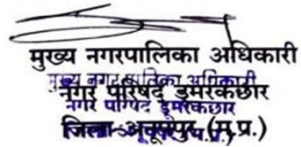 मुख्य नगरपालिका अधिकारी
मुख्य नगरपालिका अधिकारी
नगर परिषद डूमरकछार
नगर परिषद डूमरकछार
जिला-अनूपपुर (म.प्र.)